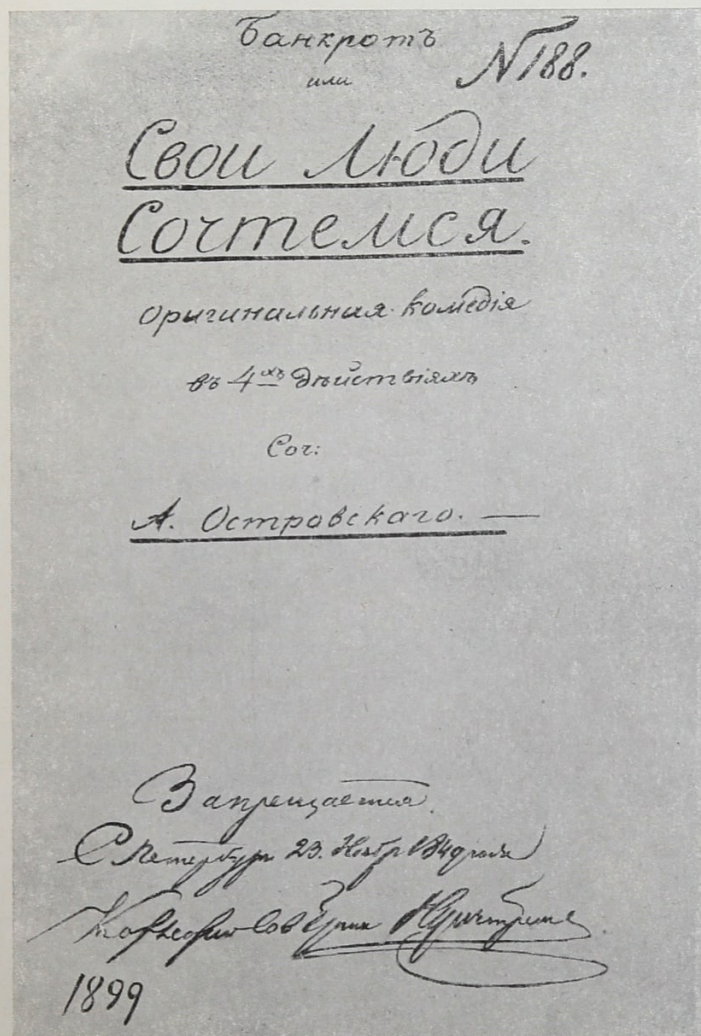 Банкротъ
или
N 188.
Свои Люди
Сочтемся.
Оригинальная комедія
въ 4хъ дѣйствіяхъ
Соч:
А. Островскаго. —
Запрещается.
С Петербургъ 23. Ноябр 1849 года
1899